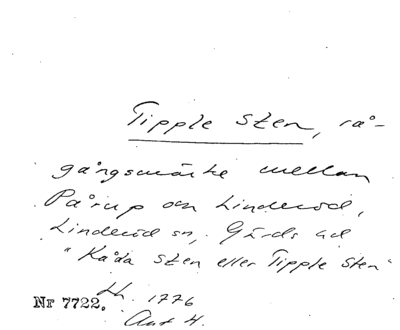 Tipple Sten, rå-
gångsmärke mellan
Pårup och Linderöd,
Linderöd sn, Gärds hd
"Kåda Sten eller Tipple Sten"
Lh. 1776
Nr 7722.
Akt 4.